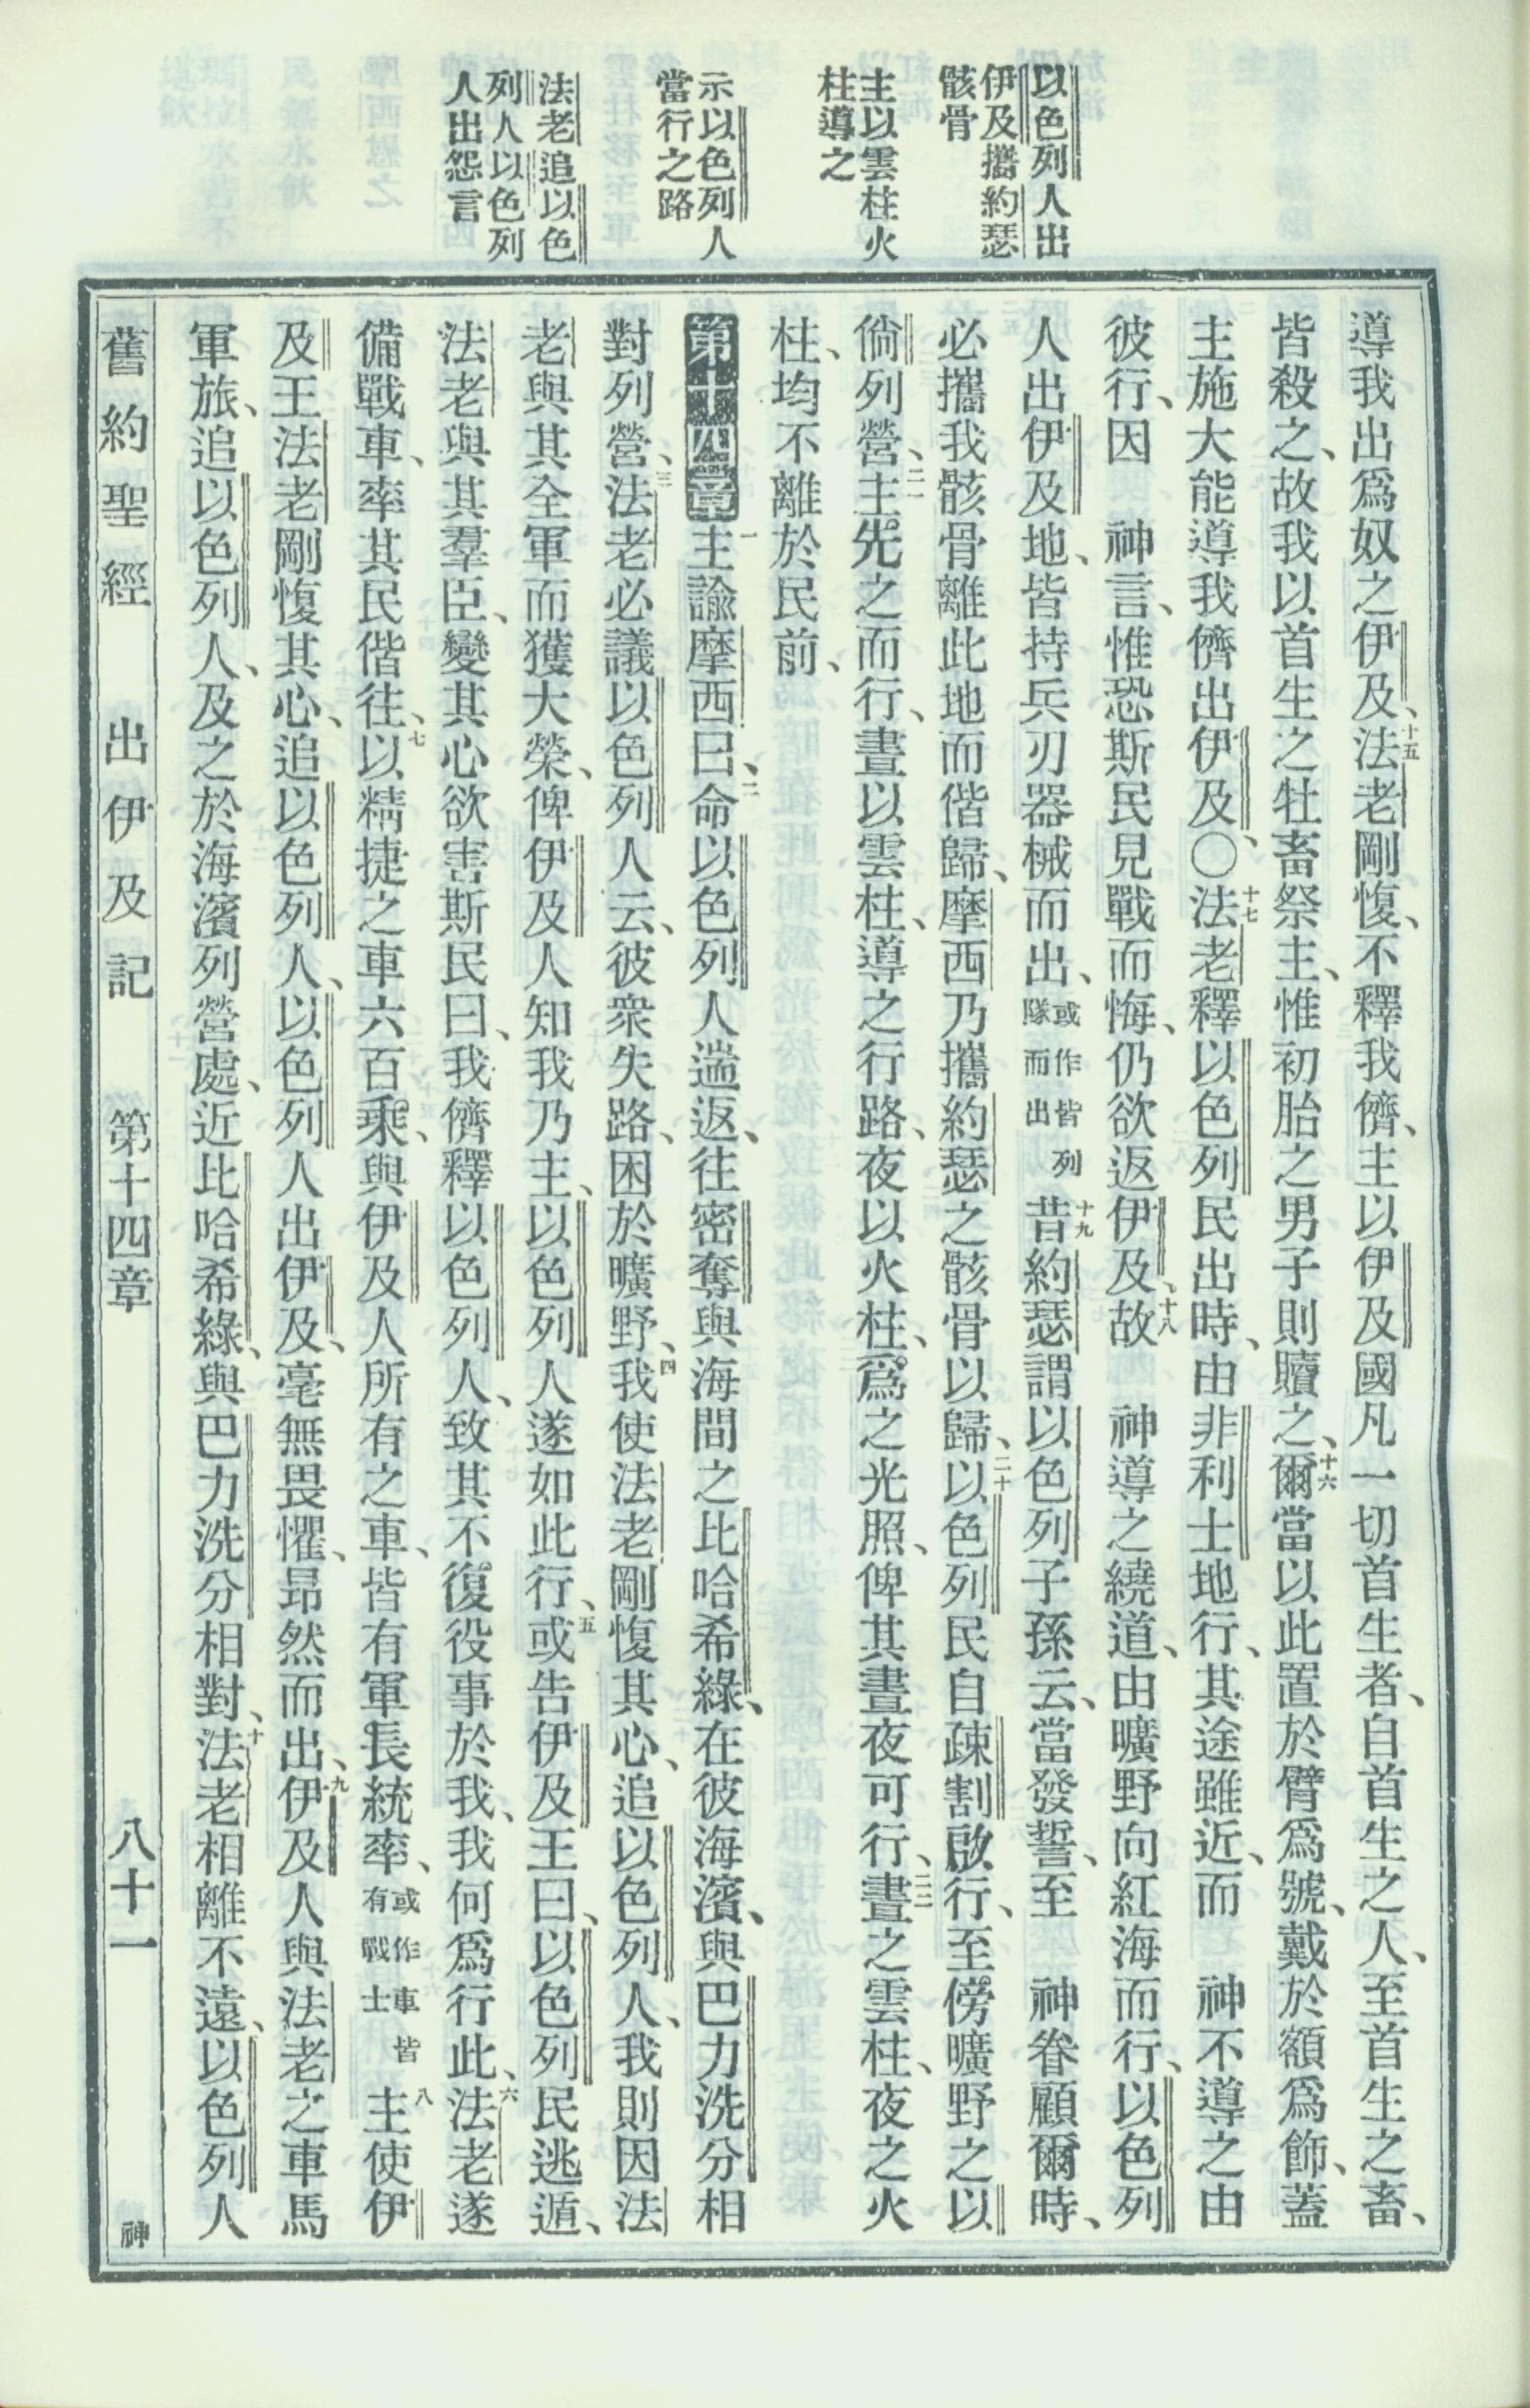 以色列人出
伊及攜約瑟
骸骨
主以雲柱火
柱導之
示以色列人
當行之路
法老追以色
列人以色列
人出怨言
導我出爲奴之伊及、十五法老剛愎、不釋我儕、主以伊及國凡一切首生者、自首生之人、至首生之畜、
皆殺之、故我以首生之牡畜祭主、惟初胎之男子則贖之、十六爾當以此置於臂爲號、戴於額爲飾、蓋
主施大能導我儕出伊及、〇十七法老釋以色列民出時、由非利士地行、其途雖近、而　神不導之由
彼行、因　神言、惟恐斯民見戰而悔、仍欲返伊及、十八故　神導之繞道、由曠野向紅海而行、以色列
人出伊及地、皆持兵刃器械而出、或作皆列隊而出十九昔約瑟謂以色列子孫云、當發誓、至　神眷顧爾時、
必攜我骸骨離此地而偕歸、摩西乃攜約瑟之骸骨以歸、二十以色列民自疎割啟行、至傍曠野之以
倘列營、二一主先之而行、晝以雲柱、導之行路、夜以火柱、爲之光照、俾其晝夜可行、二二晝之雲柱、夜之火
柱、均不離於民前、
第十四章一主諭摩西曰、二命以色列人遄返、往密奪與海間之比哈希綠、在彼海濱、與巴力洗分相
對列營、三法老必議以色列人云、彼衆失路、困於曠野、四我使法老剛愎其心、追以色列人、我則因法
老與其全軍而獲大榮、俾伊及人知我乃主、以色列人遂如此行、五或告伊及王曰、以色列民逃遁、
法老與其羣臣、變其心欲害斯民曰、我儕釋以色列人、致其不復役事於我、我何爲行此、六法老遂
備戰車、率其民偕往、七以精捷之車六百乘、與伊及人所有之車、皆有軍長統率、或作車皆有戰士八主使伊
及王法老剛愎其心、追以色列人、以色列人出伊及、毫無畏懼、昂然而出、九伊及人與法老之車馬
軍旅、追以色列人、及之於海濱列營處、近比哈希綠、與巴力洗分相對、十法老相離不遠、以色列人
舊約聖經　出伊及記　第十四章　八十一　神